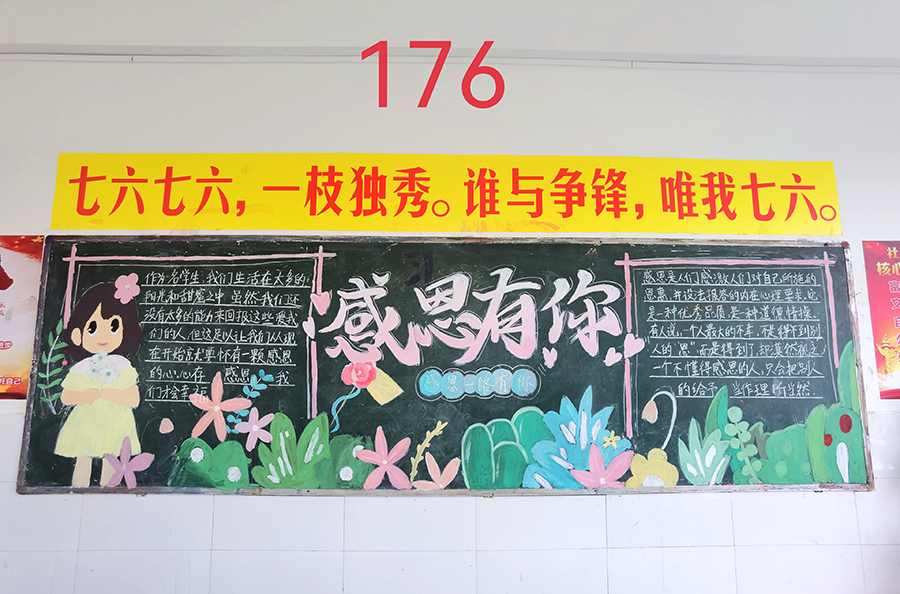 176
七六七六，一枝独秀。谁与争锋，唯我七六。
感恩有你
感恩一路有你
作为名学生 我们生活在太多的
阳光和甜蜜之中 虽然我们还
没有太多的能力来回报这些爱我
们的人,但这足以让我们从现
在开始就怀有一颗感恩
的心,心存 感恩 我
们才会幸福
感恩是人们感激人们对自己所施的
恩惠,并设法报答的内在心理要求,它
是一种优秀品质是一种道德情操.
有人说,一个人最大的不幸,不是得不到别
人的"恩",而是得到了,却漠然视之
一个不懂得感恩的人,只会把别人
的给予 当作理所当然.
社
核心
月自己